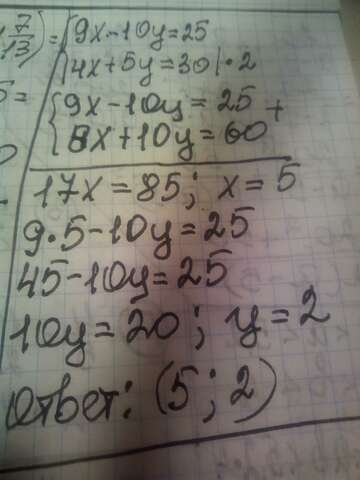 7/13) = {9x-10y=25
{4x+5y=30|·2
5= {9x-10y=25 +
{8x+10y=60
17x=85; x=5
9·5-10y=25
45-10y=25
10y=20; y=2
Ответ: (5; 2)